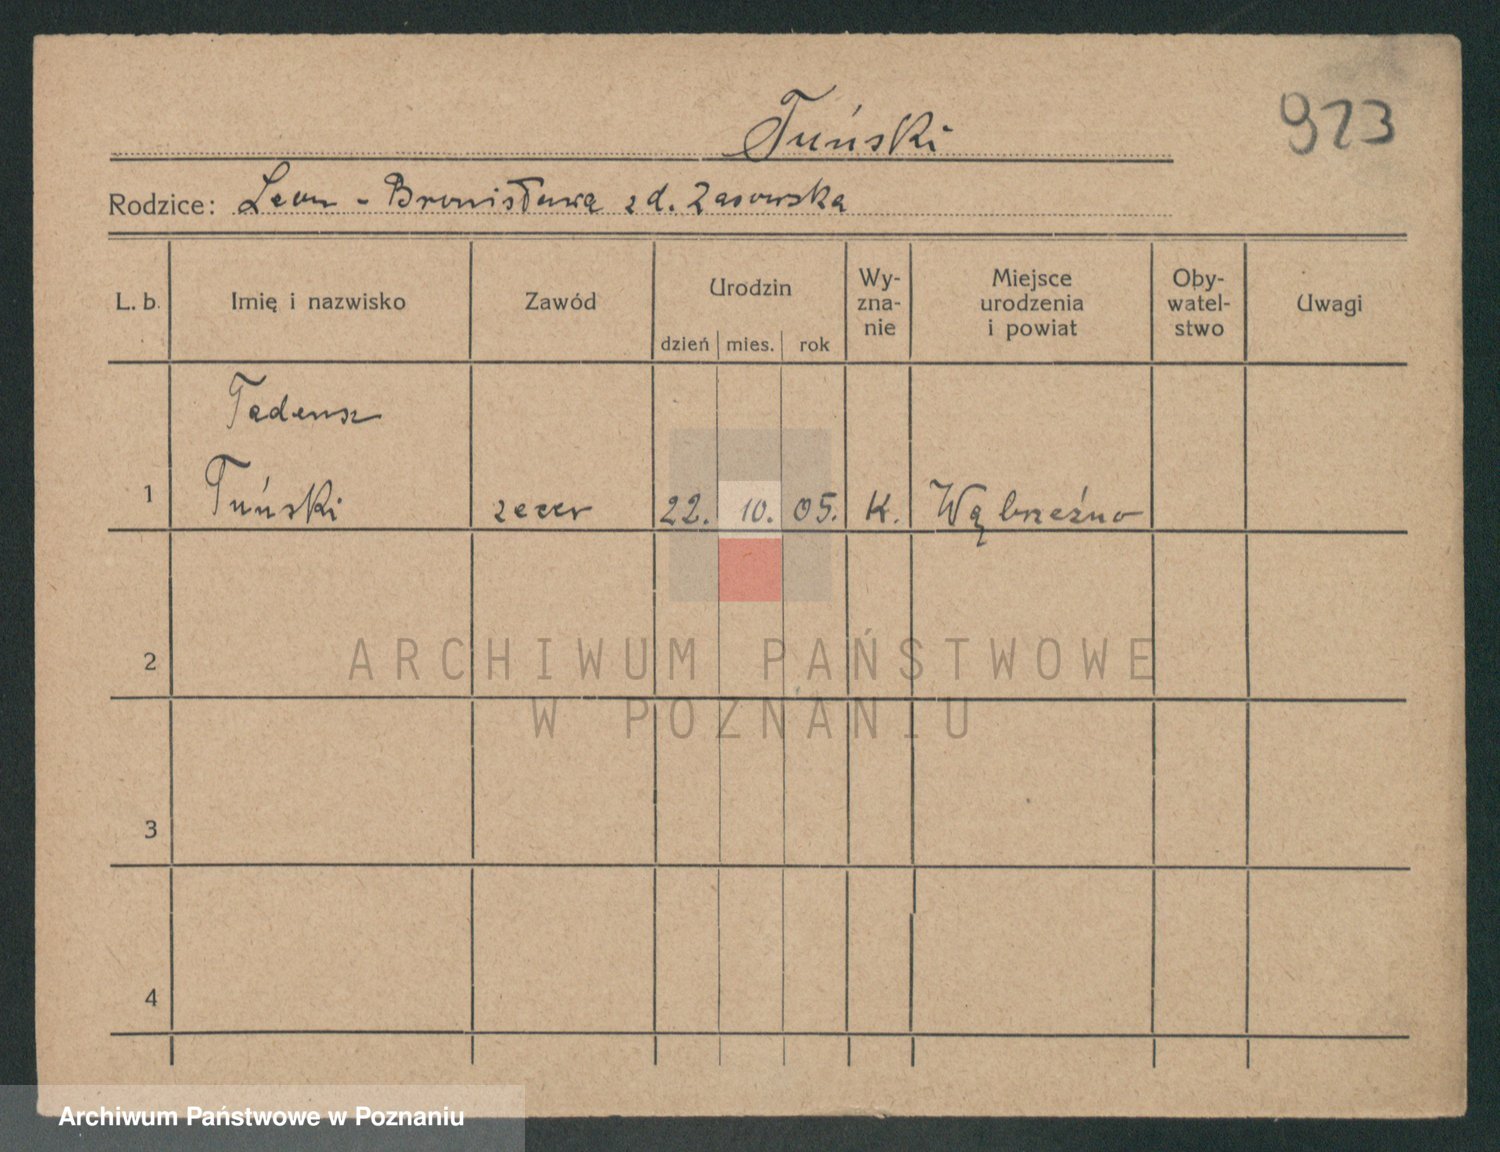 Tuński
923
Rodzice: Leon - Bronisława zd. Zasowska
L. b. Imię i nazwisko Zawód Urodzin Wy-zna-nie Miejsce urodzenia i powiat Oby-watel-stwo Uwagi
dzień mies. rok
Tadeusz
1 Tuński zecer 22. 10. 05. K. Wąbrzeźno
2
ARCHIWUM PAŃSTWOWE
W POZNANIU
3
4
Archiwum Państwowe w Poznaniu